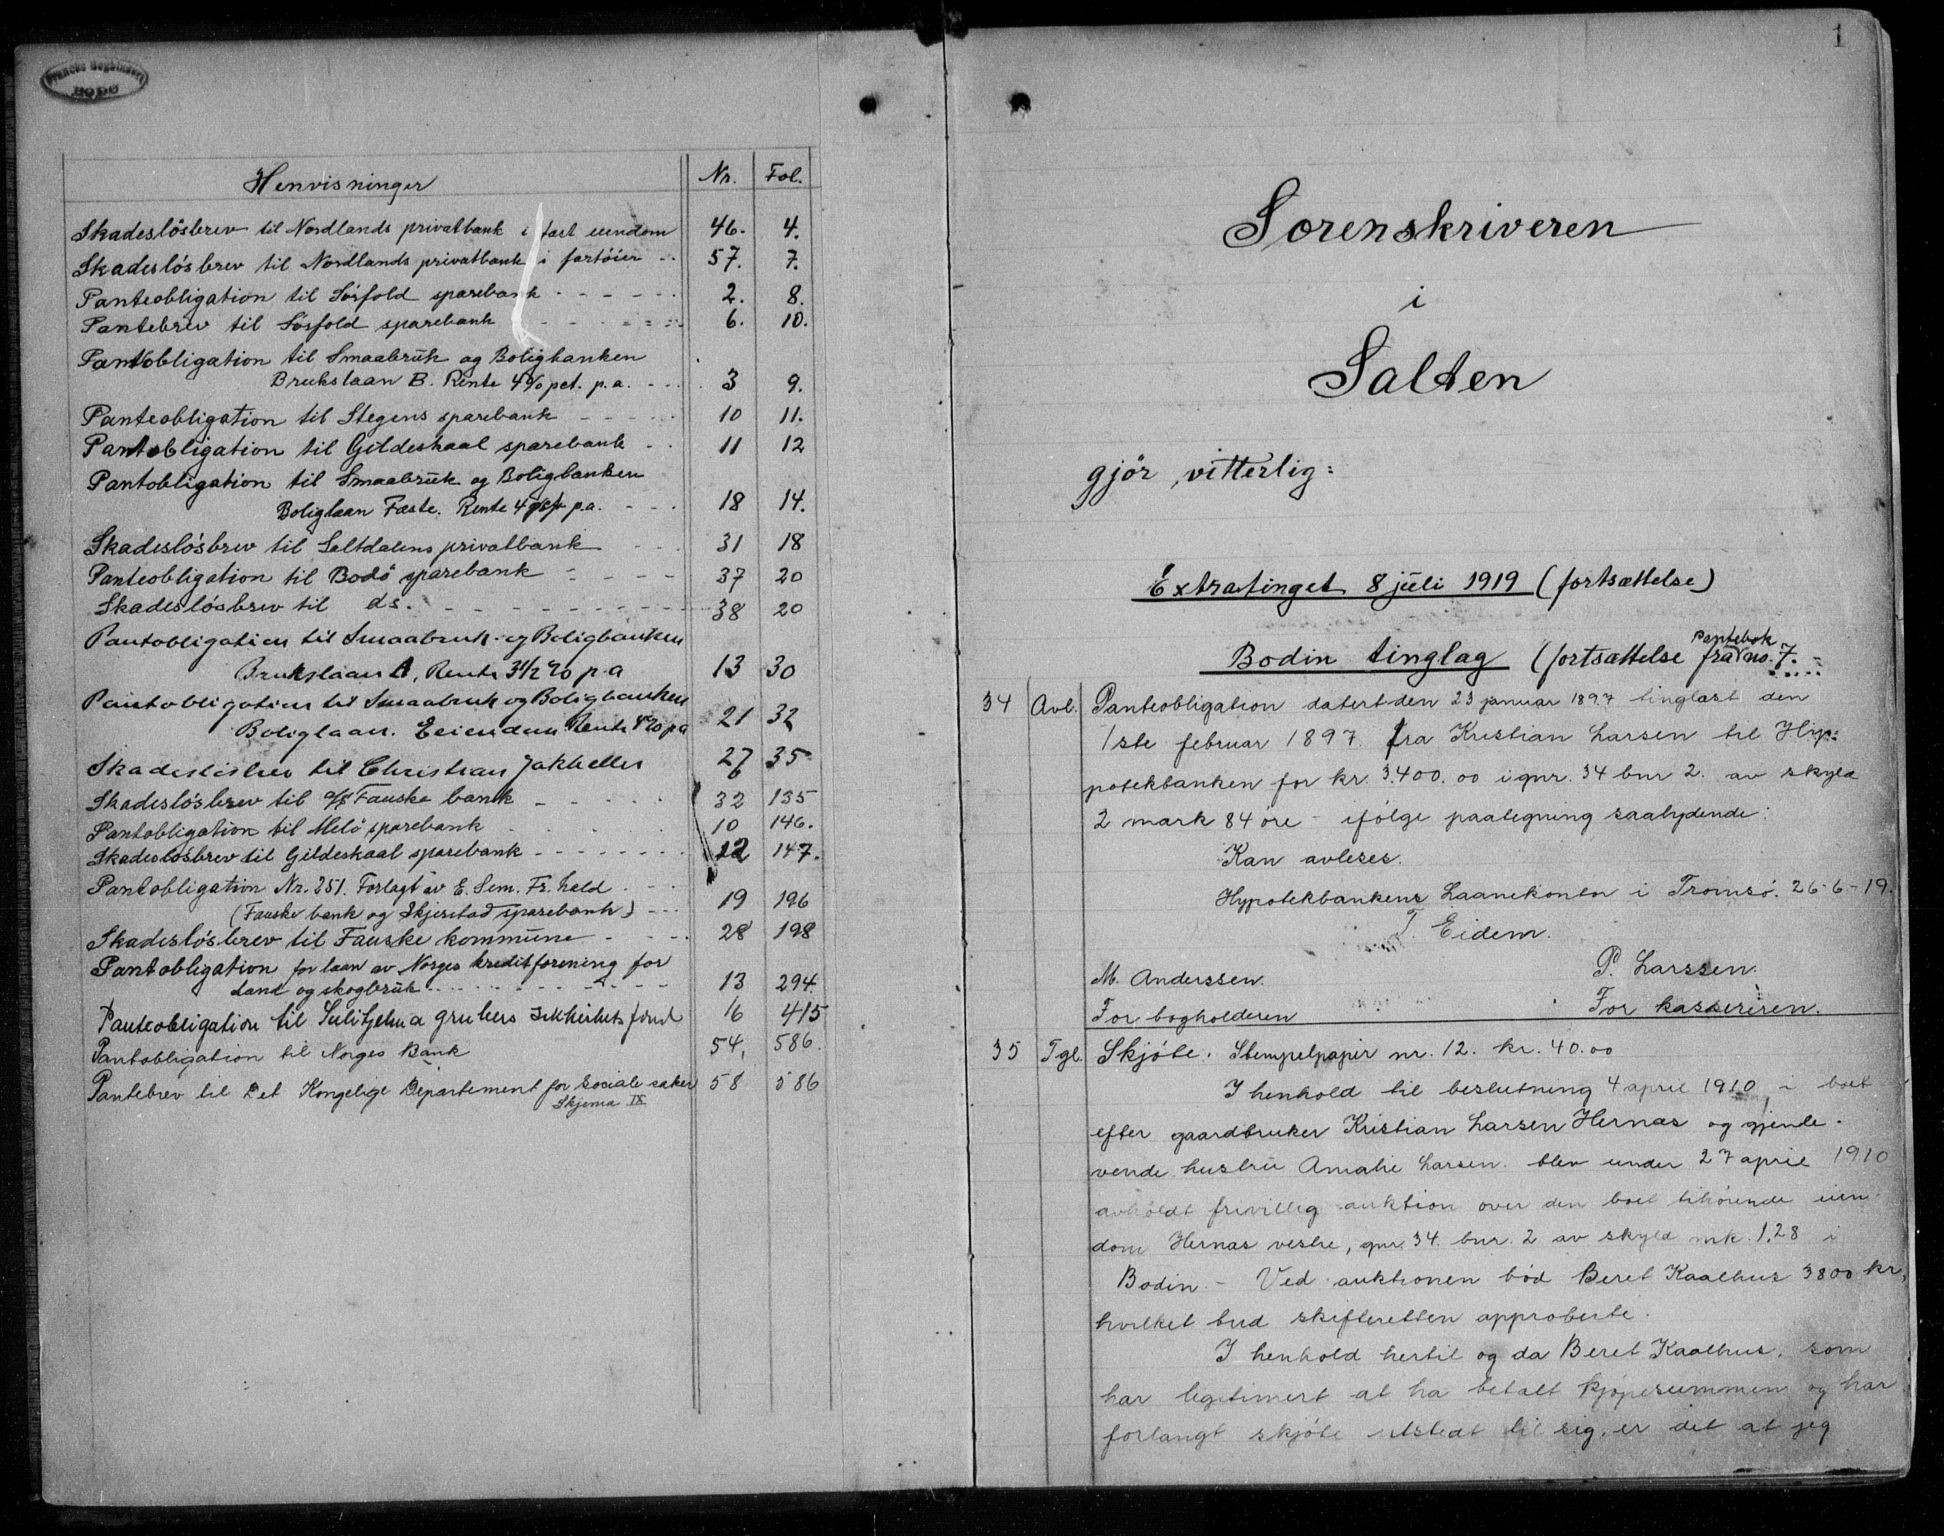 Francke Bogbinderi
BODØ
Henvisninger Nr. Fol.
Skadesløsbrev til Nordlands privatbank i fast eiendom 46. 4.
Skadesløsbrev til Nordlands privatbank i fartøier 57. 7.
Panteobligation til Sørfold sparebank 2. 8.
Pantebrev til Sørfold sparebank 6. 10.
Pantobligation til Smaabruk og Boligbanken
Brukslaan B. Rente 4% pct. p.a. 3 9.
Panteobligation til Stegens sparebank 10 11.
Pantobligation til Gildeskaal sparebank 11 12
Pantobligation til Smaabruk og Boligbanken
Boliglaan Fæste. Rente 4 pct p.a. 18 14.
Skadesløsbrev til Saltdalens privatbank 31 18
Panteobligation til Bodø sparebank 37 20
Skadesløsbrev til ds. 38 20
Pantobligation til Smaabruk- og Boligbanken
Brukslaan A, Rente 3 1/2 % p.a 13 30
Pantobligation til Smaabruk og Boligbanken
Boliglaan. Eiendom Rente 4% p.a 21 32
Skadesløsbrev til Christian Jakhelln 27 35
Skadesløsbrev til a/s Fauske bank 32 135
Pantobligation til Melø sparebank 10 146.
Skadesløsbrev til Gildeskaal sparebank 12 147.
Pantobligation Nr. 251. Forlagt av E. Sem. Fr.hald
(Fauske bank og Skjerstad sparebank) 19 196
Skadesløsbrev til Fauske kommune 28 198
Pantobligation for laan av Norges kreditforening for
land og skogbruk 13 294.
Panteobligation til Sulitjelma grubers sikkerhetsfond 16 415
Pantobligation til Norges Bank 54, 586.
Pantebrev til Det Kongelige Departement for sociale saker 58 586
Skjema IX
1
Sorenskriveren
i
Salten
gjør vitterlig:
Extratinget 8 juli 1919 (fortsættelse)
Bodin tinglag (fortsættelse fra Pantebok no. 7.
34 Avl. Panteobligation datert den 23 januar 1897 tinglæst den
1ste februar 1897 fra Kristian Larsen til Hyp:
potekbanken for kr. 3.400.00 i gnr. 34 bnr 2. av skyld
2 mark 84 øre - ifølge paategning saalydende:
Kan avleses.
Hypotekbankens Laanekontor i Tromsø. 26-6-19.
T. Eidem.
M. Anderssen. P. Larssen.
For bogholderen For kassereren.
35 Tgl. Skjøte. Stempelpapir nr. 12. kr. 40.00
I henhold til beslutning 4 april 1910, i boet
efter gaardbruker Kristian Larsen Hernæs og gjenle-
vende hustru Amalie Larsen. blev under 27 april 1910
avholdt frivillig auktion over den boet tilhørende eien-
dom Hernæs vestre, gnr. 34. bnr. 2 av skyld mk. 1,28 i
Bodin. - Ved auktionen bød Beret Kaalhus 3800 kr,
hvilket bud skifteretten approberte.
I henhold hertil og da Beret Kaalhus, som
har legitimert at ha betalt kjøpesummen og har
forlangt skjøte utstedt til sig, er det at jeg